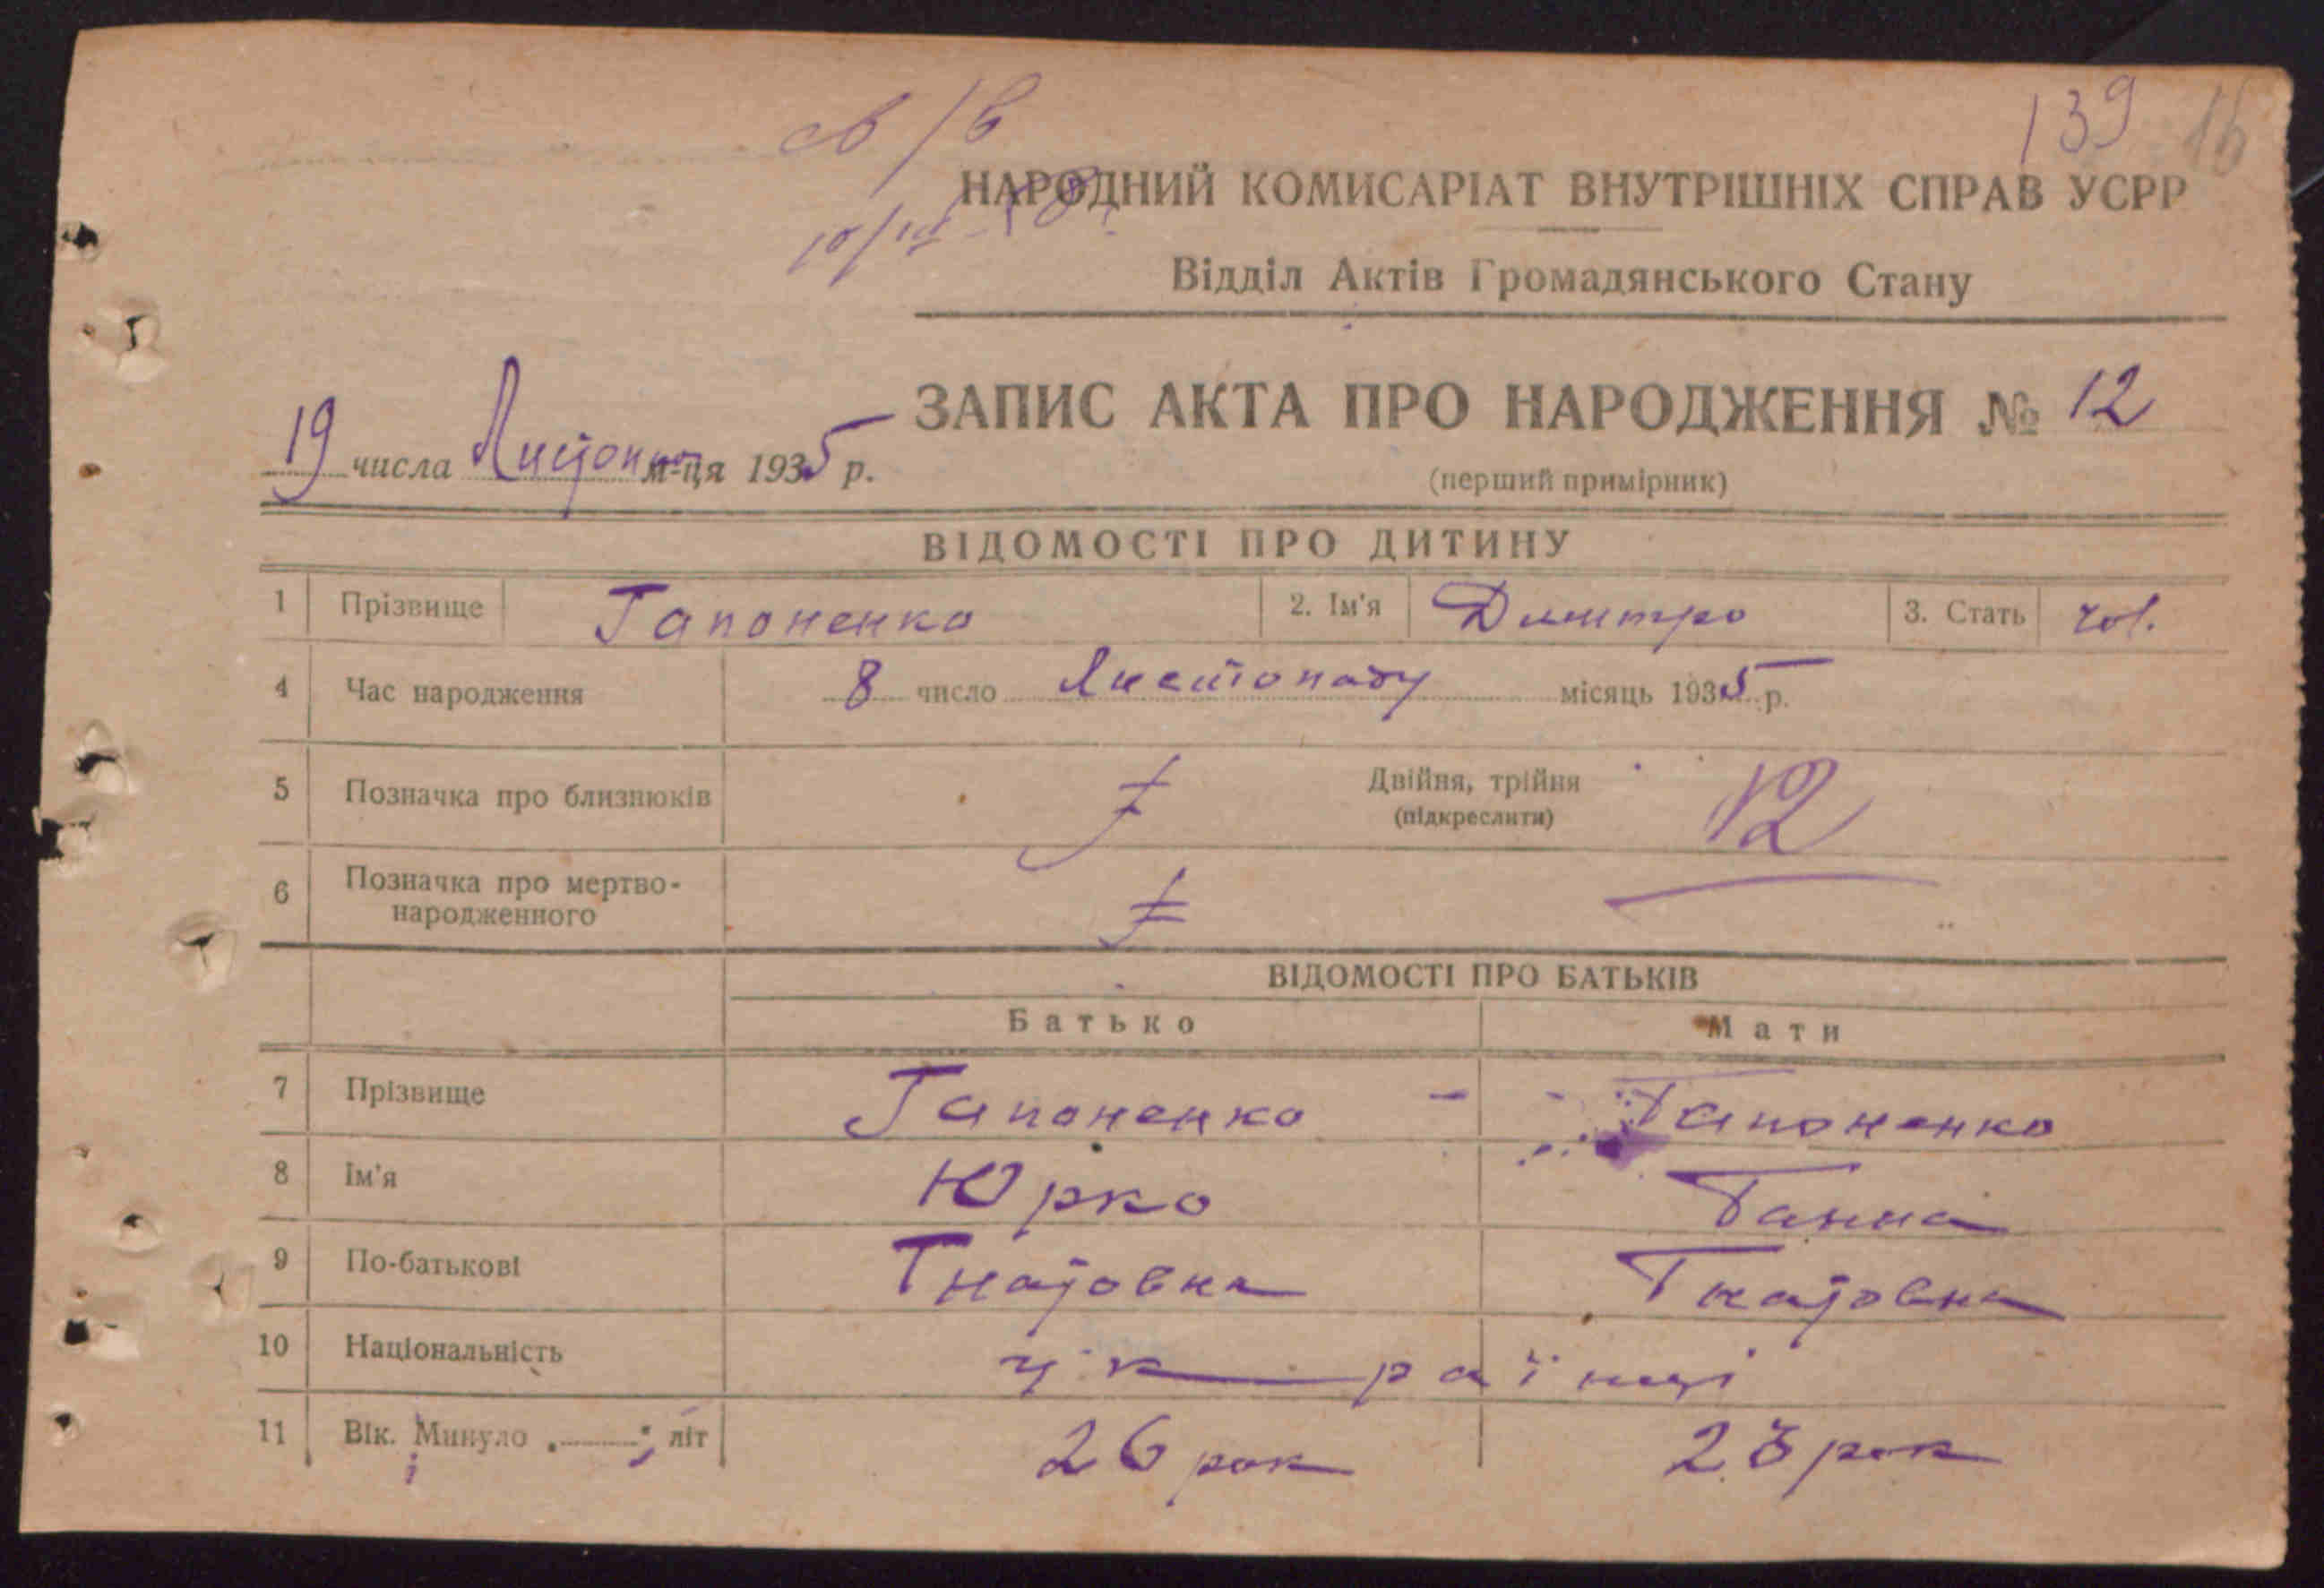 139 16
св/в
НАРОДНИЙ КОМИСАРІАТ ВНУТРІШНІХ СПРАВ УСРР
Відділ Актів Громадянського Стану
ЗАПИС АКТА ПРО НАРОДЖЕННЯ № 12
19 числа Листопа м-ця 1935 р.
(перший примірник)
ВІДОМОСТІ ПРО ДИТИНУ
1 Прізвище Гапоненко 2. Ім'я Дмитро 3. Стать чол.
4 Час народження 8 число Листопаду місяць 1935 р.
5 Позначка про близнюків Двійня, трійня 12
(підкреслити)
6 Позначка про мертво-
народженного
ВІДОМОСТІ ПРО БАТЬКІВ
Батько Мати
7 Прізвище Гапоненко - Гапоненко
8 Ім'я Юрко Ганна
9 По-батькові Гнатовна Гнатовна
10 Національність українці
11 Вік. Минуло літ 26 рок 23 рок